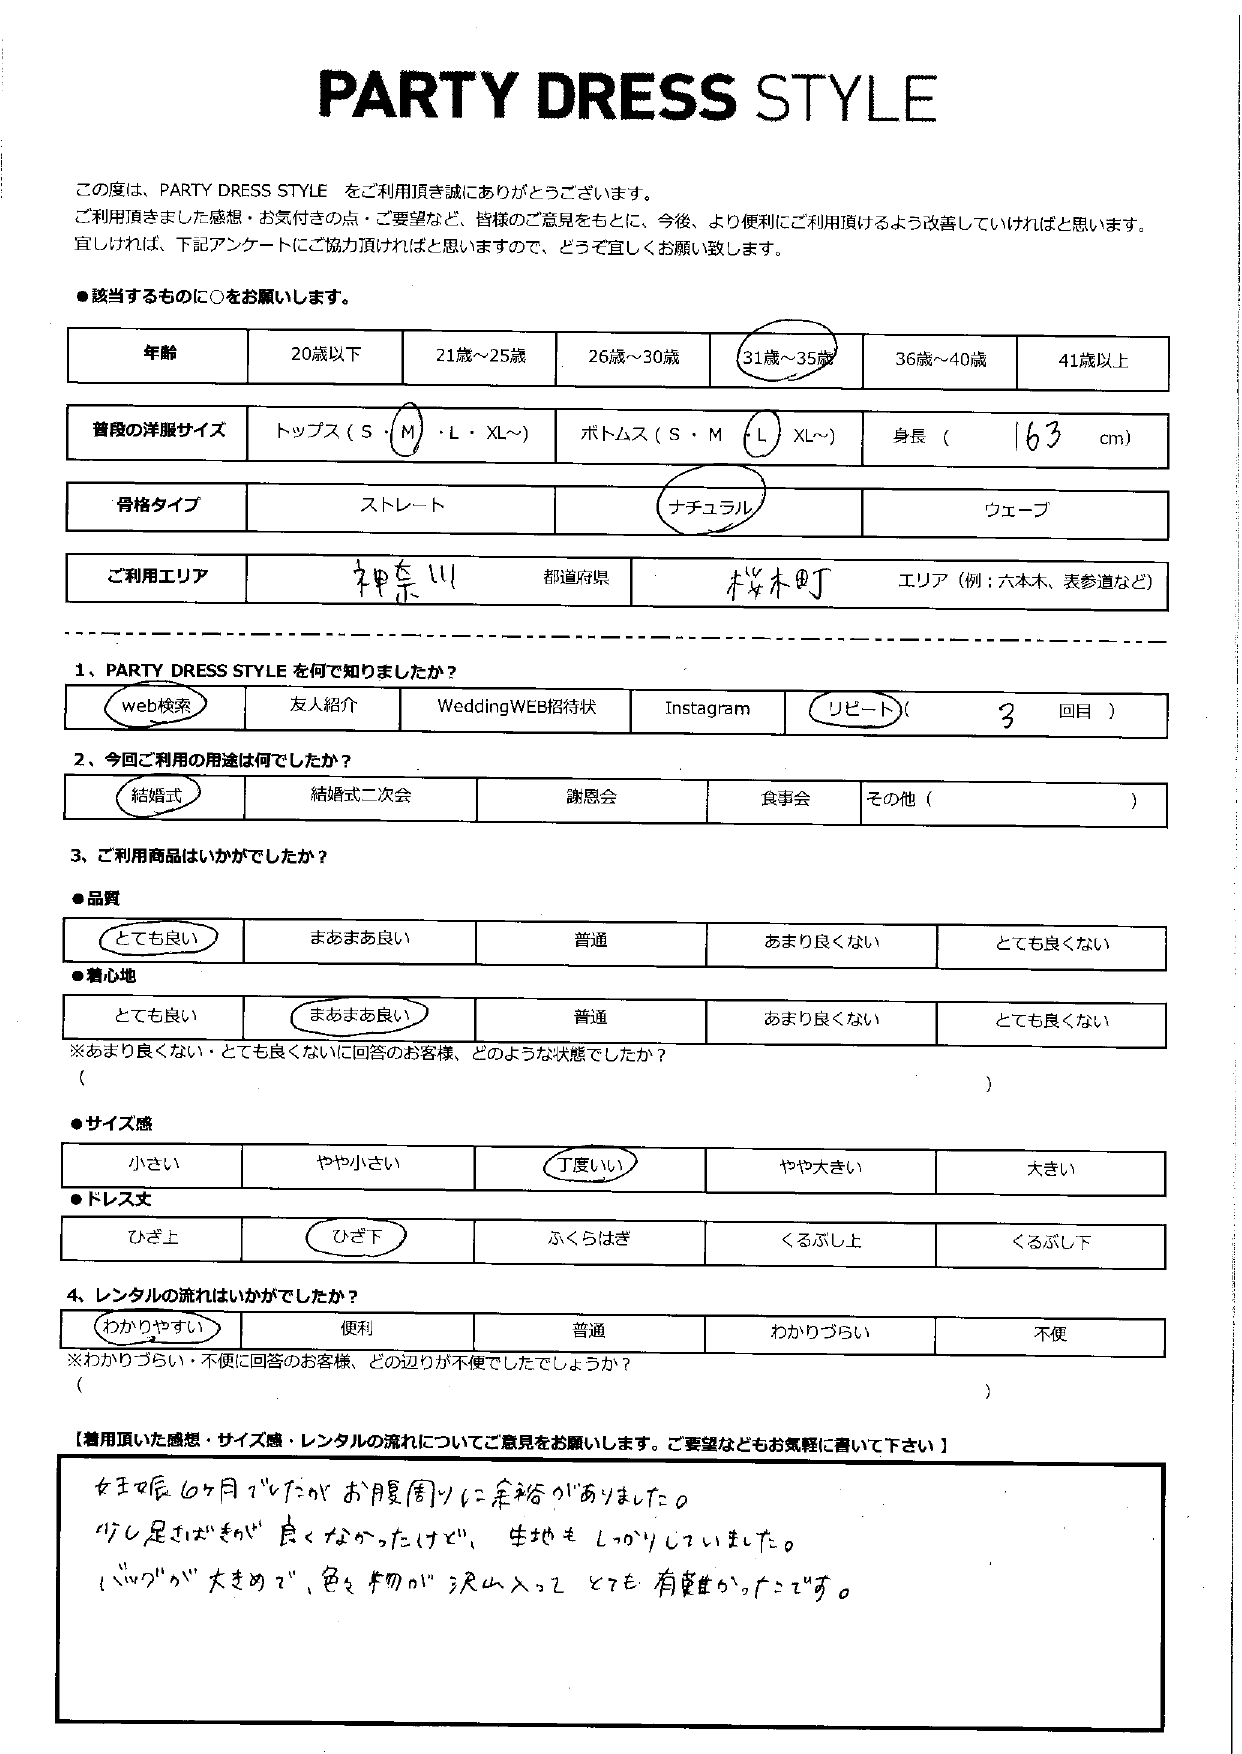 PARTY DRESS STYLE
この度は、PARTY DRESS STYLE をご利用頂き誠にありがとうございます。
ご利用頂きました感想・お気付きの点・ご要望など、皆様のご意見をもとに、今後、より便利にご利用頂けるよう改善していければと思います。
宜しければ、下記アンケートにご協力頂ければと思いますので、どうぞ宜しくお願い致します。
●該当するものに○をお願いします。
年齢 20歳以下 21歳～25歳 26歳～30歳 31歳～35歳 36歳～40歳 41歳以上
普段の洋服サイズ トップス ( S ・ M ・ L ・ XL～) ボトムス ( S ・ M ・ L XL～) 身長 ( 163 cm)
骨格タイプ ストレート ナチュラル ウェーブ
ご利用エリア 神奈川 都道府県 桜木町 エリア（例；六本木、表参道など）
1、PARTY DRESS STYLE を何で知りましたか？
web検索 友人紹介 WeddingWEB招待状 Instagram リピート( 3 回目 )
2、今回ご利用の用途は何でしたか？
結婚式 結婚式二次会 謝恩会 食事会 その他 ( )
3、ご利用商品はいかがでしたか？
●品質
とても良い まあまあ良い 普通 あまり良くない とても良くない
●着心地
とても良い まあまあ良い 普通 あまり良くない とても良くない
※あまり良くない・とても良くないに回答のお客様、どのような状態でしたか？
( )
●サイズ感
小さい やや小さい 丁度いい やや大きい 大きい
●ドレス丈
ひざ上 ひざ下 ふくらはぎ くるぶし上 くるぶし下
4、レンタルの流れはいかがでしたか？
わかりやすい 便利 普通 わかりづらい 不便
※わかりづらい・不便に回答のお客様、どの辺りが不便でしたでしょうか？
( )
【着用頂いた感想・サイズ感・レンタルの流れについてご意見をお願いします。ご要望などもお気軽に書いて下さい 】
妊娠6ヶ月でしたが お腹周りに余裕がありました。
少し足さばきが 良くなかったけど、生地も しっかりしていました。
バッグが 大きめで、色々物が 沢山入って とても 有難かったです。